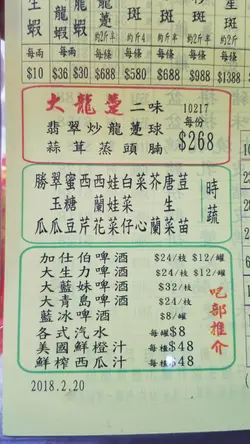 每兩 每兩 每條 每條 每條 每條
$10 $36 $30 $688 $580 $688 $988 $1388
大龍躉 二味 10217
翡翠炒龍躉球 每份
蒜茸蒸頭腩 $268
勝翠蜜西西娃白菜芥唐荳
玉糖 蘭娃菜 生
瓜瓜豆芹花菜仔心蘭菜苗
時蔬
加仕伯啤酒 $24/枝 $12/罐
大生力啤酒 $24/枝 $12/罐
大藍妹啤酒 $32/枝
大青島啤酒 $24/枝
藍冰啤酒 $8/罐
各式汽水 每罐$8
美國鮮橙汁 每楂$48
鮮榨西瓜汁 每楂$48
吧部推介
2018.2.20